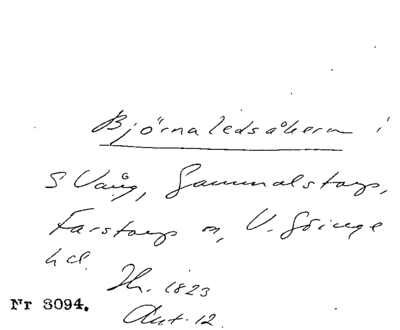 Björnaledsåkern i
S Vång, Gammalstorp,
Farstorps sn, V. Göinge
hd.
Th. 1823
Nr 3094.
Akt. 12.